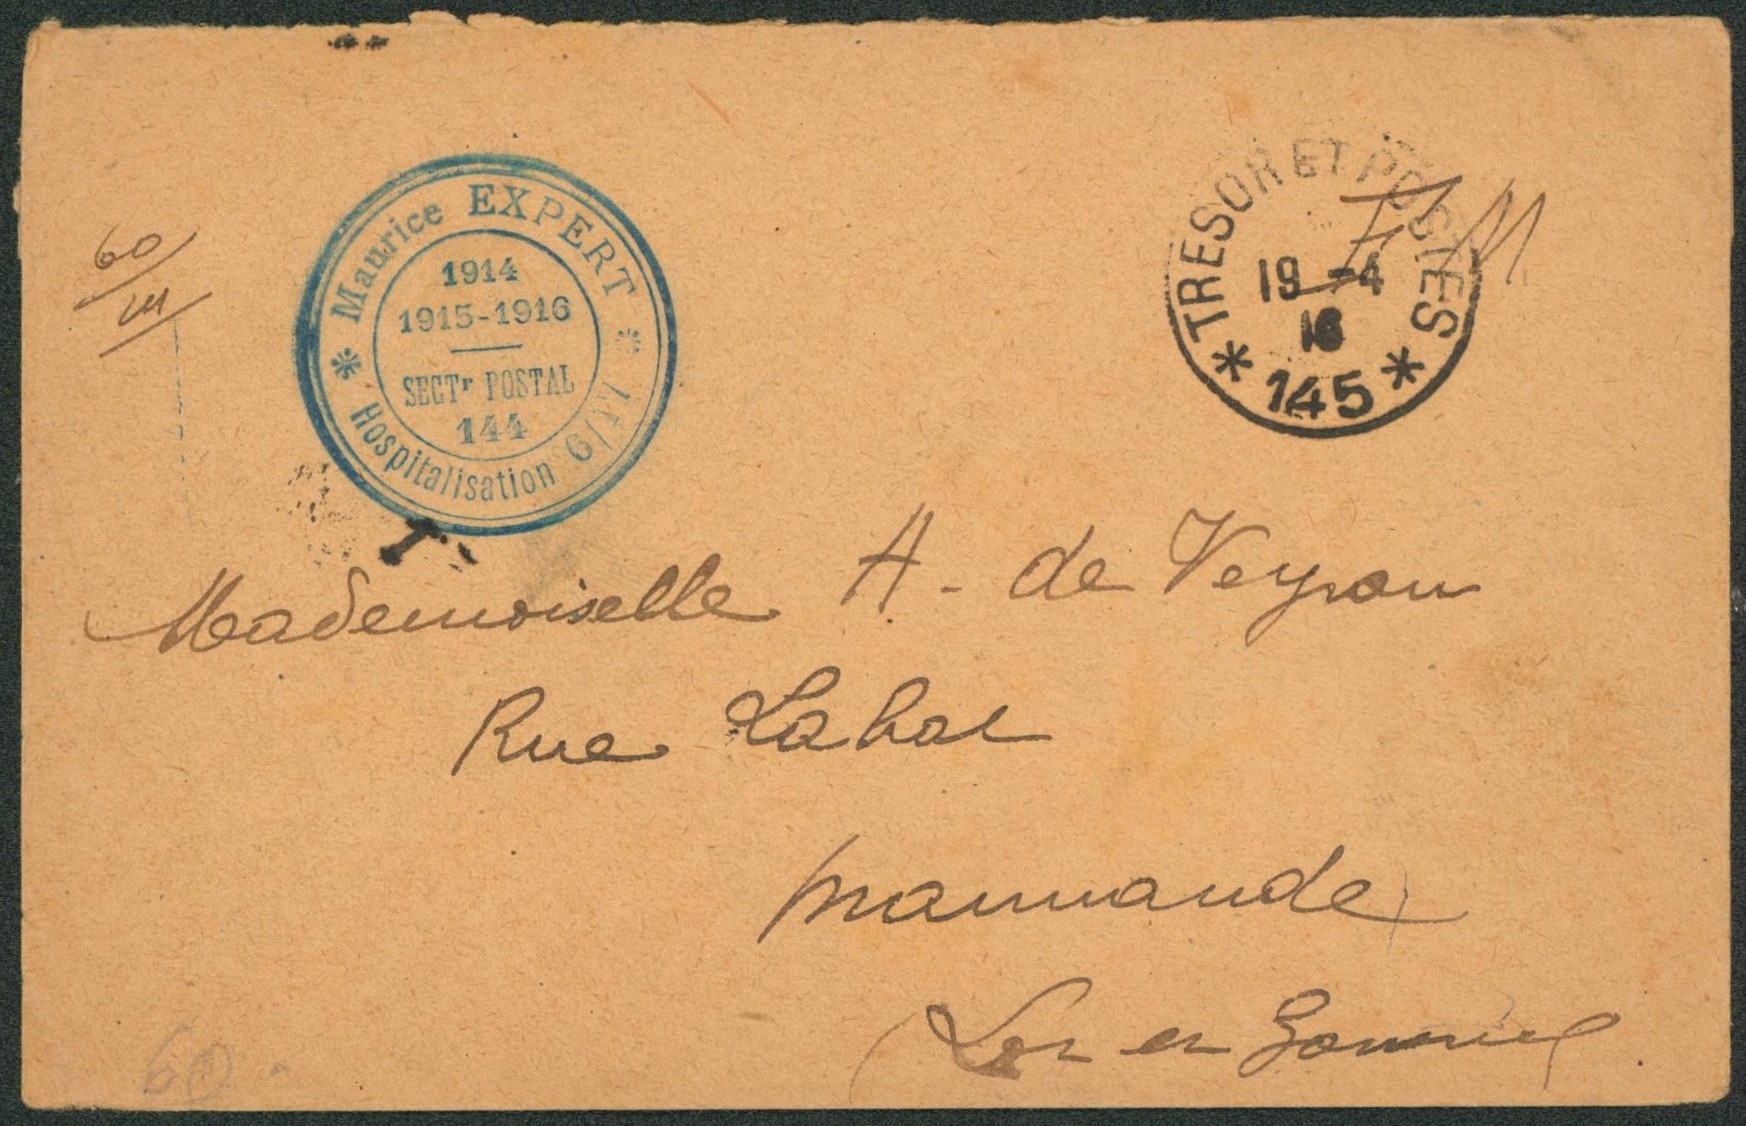 60/
III/
Maurice EXPERT
1914
1915-1916
SECTr POSTAL
144
Hospitalisation 6/17
TRESOR ET POSTES
F M
19 -4
16
* 145 *
Mademoiselle A- de Veyran
Rue Labat
Marmande
Lot et Garonne
60